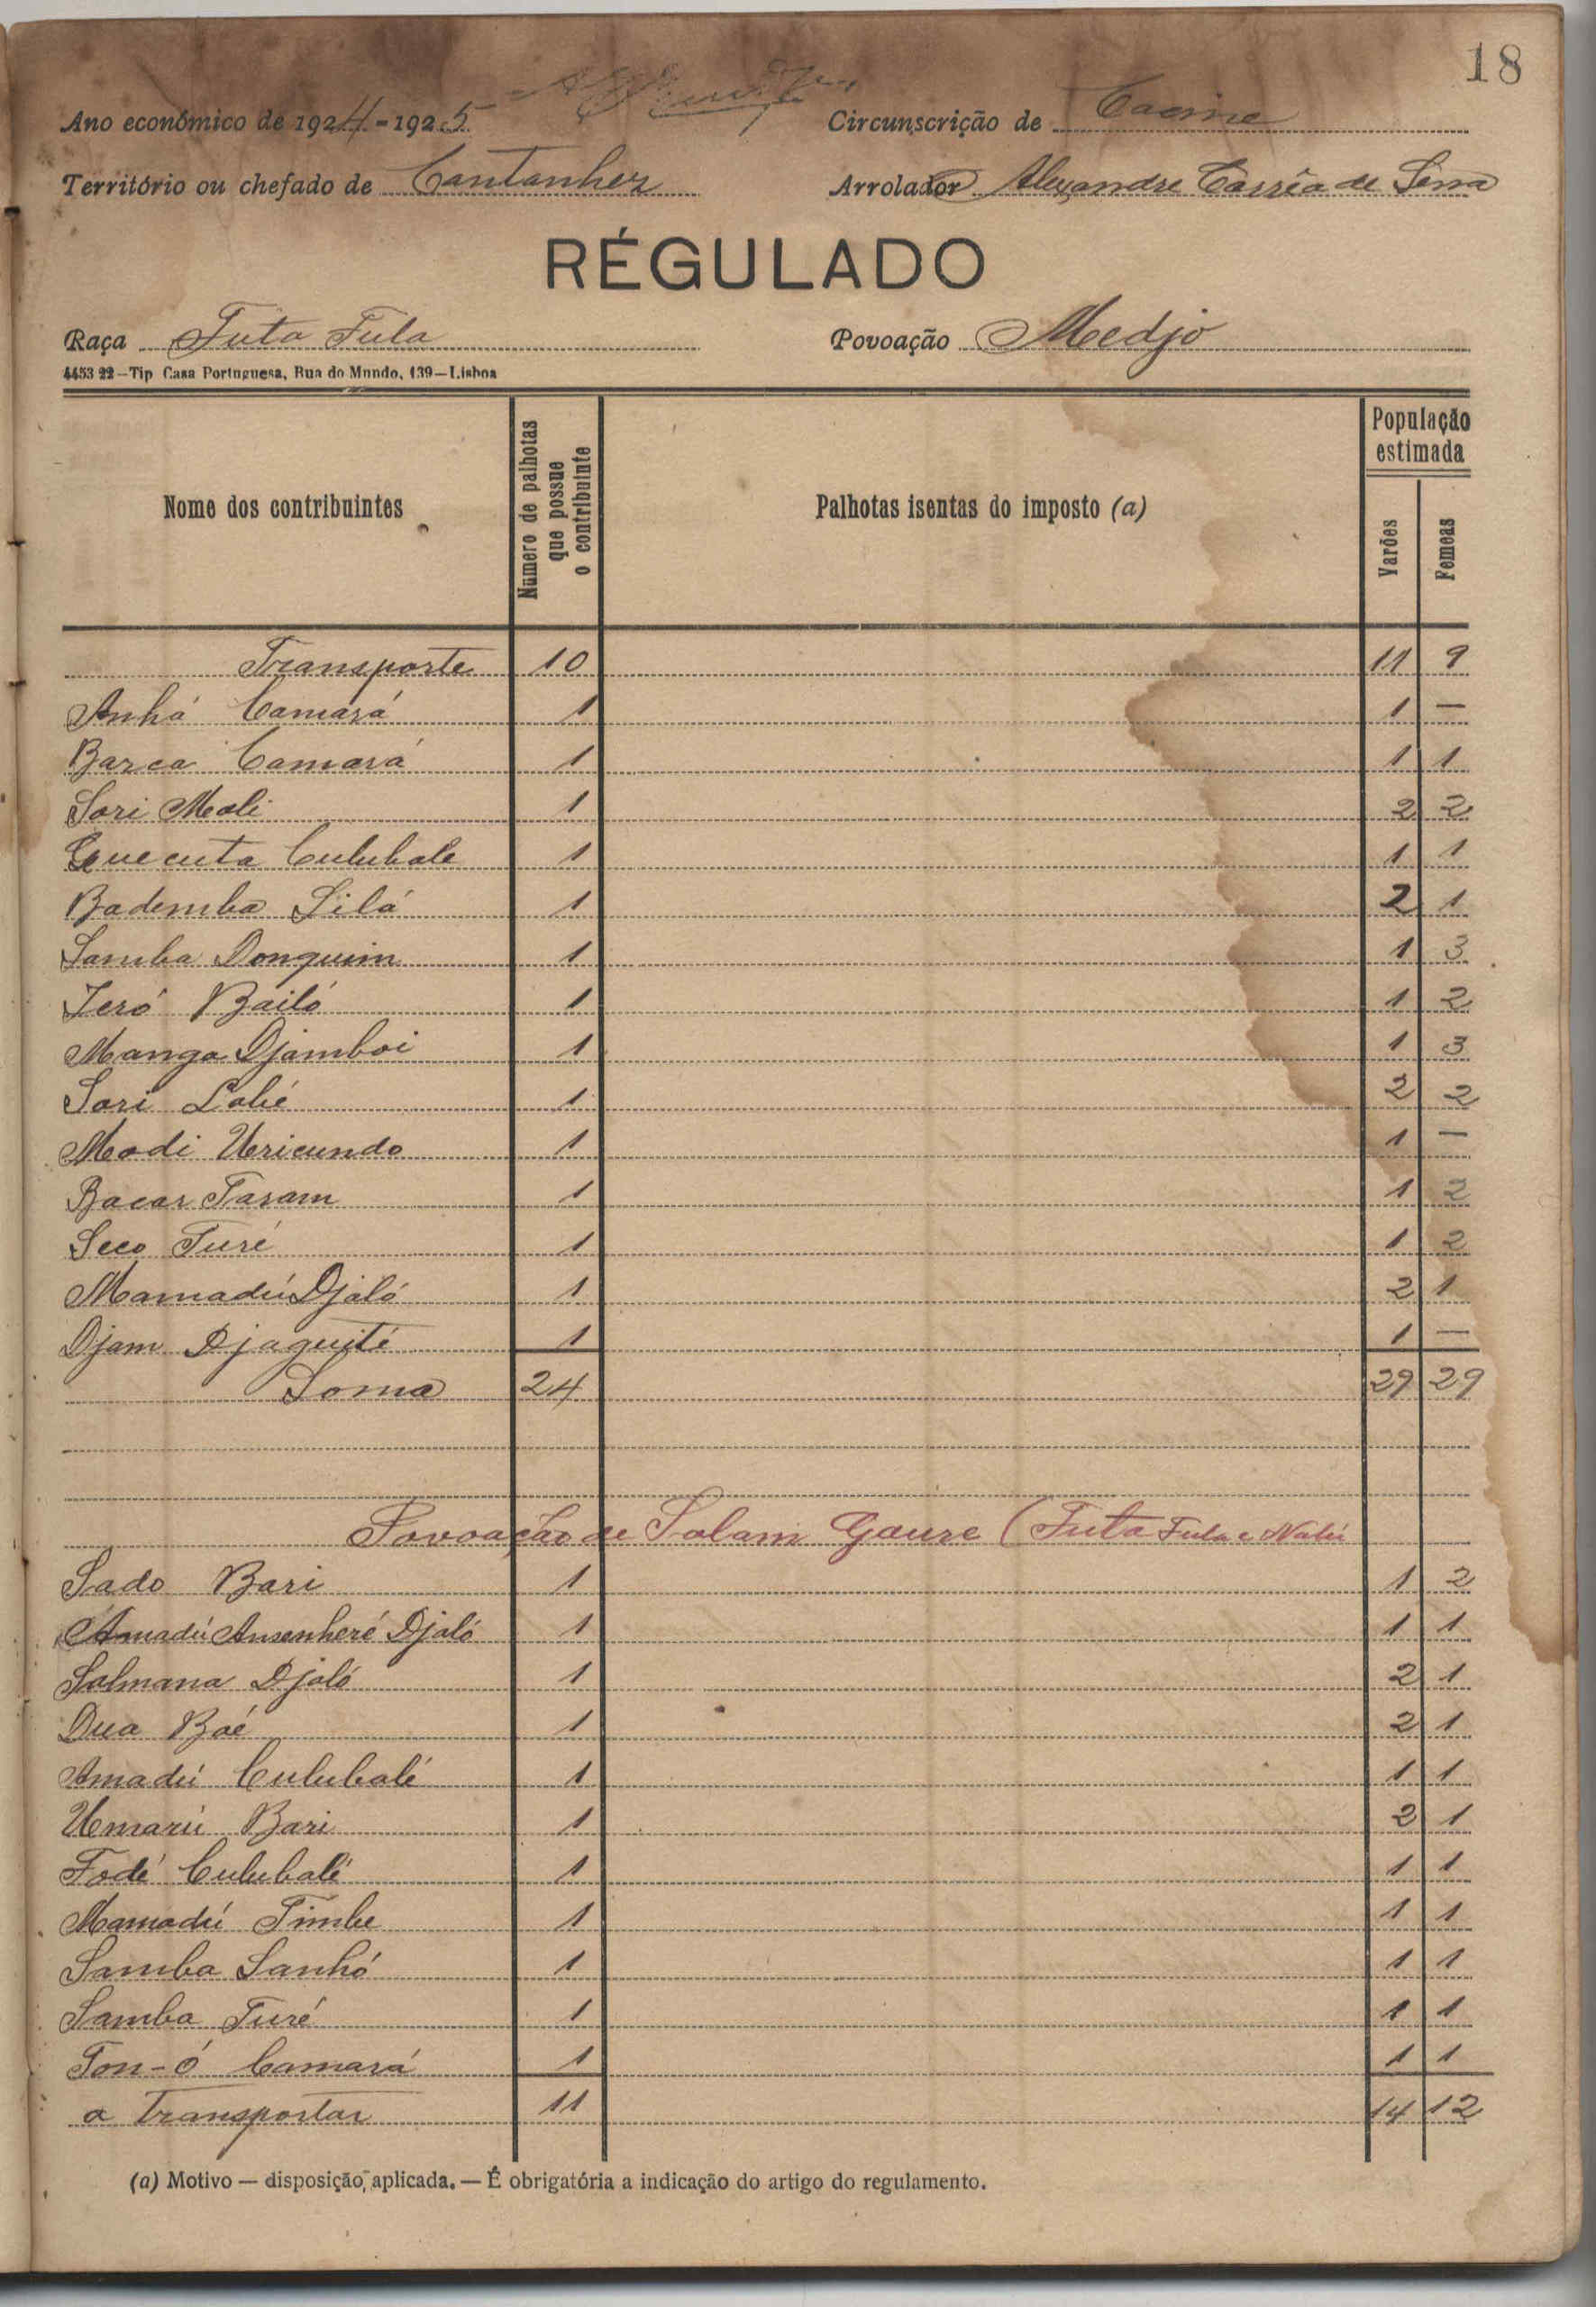 18
Ano económico de 1924-1925 Circunscrição de Cacine
Território ou chefado de Cantanhez Arrolador Alexandre Corrêa de Sena
RÉGULADO
Raça Futa Fula Povoação Medjo
4453 22—Tip Casa Portuguesa, Rua do Mundo, 139—Lisboa
Nome dos contribuintes Número de palhotas que possue o contribuinte Palhotas isentas do imposto (a) População estimada Varões Femeas
Transporte 10 11 9
Anhá Camará 1 1 —
Barca Camará 1 1 1
Sori Mali 1 2 2
Quecuta Culubale 1 1 1
Bademba Silá 1 2 1
Samba Donquim 1 1 3
Jeró Bailó 1 1 2
Manga Djamboi 1 1 3
Sori Labé 1 2 2
Modi Uricundo 1 1 —
Bacar Taram 1 1 2
Seco Turé 1 1 2
Mamadú Djaló 1 2 1
Djam Djaquité 1 1 —
Soma 24 29 29
Povoação de Salam Gaure (Futa Fula e Nalú
Sado Bari 1 1 2
Amadú Ansenheré Djaló 1 1 1
Salmana Djaló 1 2 1
Dua Baé 1 2 1
Amadú Culubalé 1 1 1
Umarú Bari 1 2 1
Fodé Culubalé 1 1 1
Mamadú Timbe 1 1 1
Samba Sanhó 1 1 1
Samba Turé 1 1 1
Ton-ó Camará 1 1 1
a Transportar 11 14 12
(a) Motivo — disposição aplicada. — É obrigatória a indicação do artigo do regulamento.